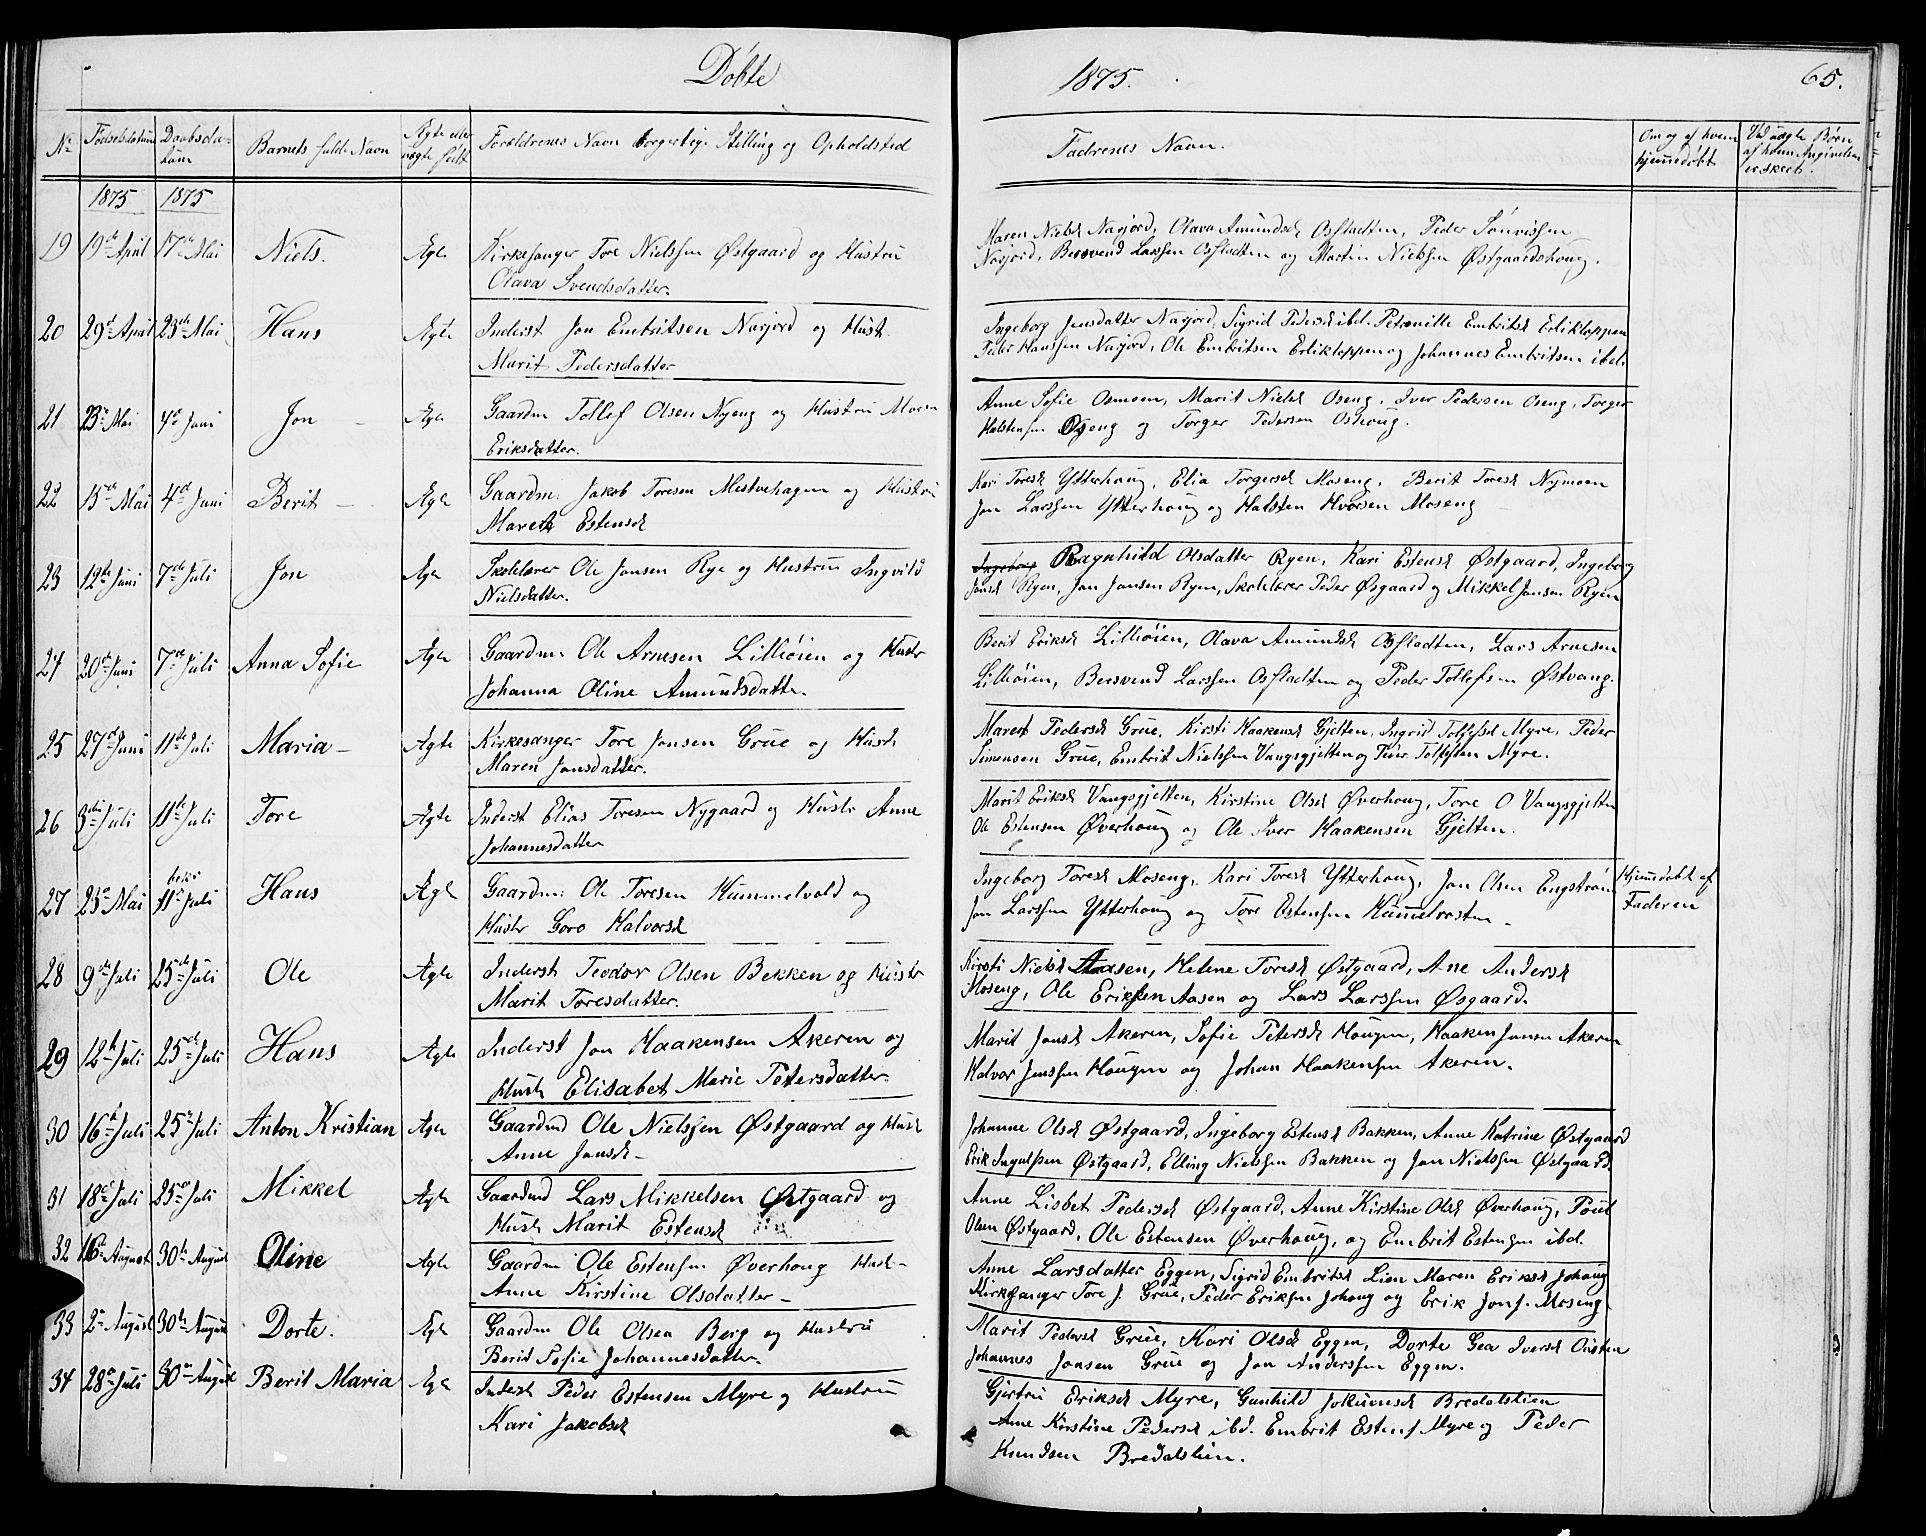 Døbte
1875.
65.
No Fødselsdatum Daabsdatum Barnets fulde Navn Ægte eller uægte født Forældrenes Navn borgerlige Stilling og Opholdsted Fadrenes Navn. Om og af hvem hjemmedøbt Ved uægte Børn af hvem Angivelsen er skeet.
1875 1875
19 19de April 17de Mai Niels. Ægte Kirkesanger Tore Nielssen Østgaard og Hustru
Olava Svendsdatter.
Maren Nielsd Narjord, Olava Amundsd Osstadten, Peder Simonssen
Narjord, Bersvend Larssen Osstadten og Martin Nielssen Østgaardshoug.
20 29de April 23de Mai Hans Ægte Inderst Jon Embritsen Narjord og Hust.
Marit Pedersdatter
Ingeborg Jonsdatter Narjord, Sigrid Pedersd ibd. Petronille Embritsd Erlikloppen
Peder Hanssen Narjord, Ole Embritsen Erlikloppen og Johannes Embritsen ibd.
21 23de Mai 4de Juni Jon Ægte Gaardm Tollef Olsen Nyeng og Hustru Maren
Eriksdatter.
Anne Sofie Osmoen, Marit Nielsd Oseng, Iver Pedersen Oseng, Torger
Halstensen Oseng og Torger Pedersen Oshoug.
22 15de Mai 4de Juni Berit Ægte Gaardm: Jakob Toresen Mistvehagen og Hustru
Maret Estensd
Kari Toresd Ytterhoug, Elia Torgersd Moseng, Berit Toresd Nymoen
Jon Larssen Ytterhoug og Halsten Hvorsen Moseng
23 12te Juni 7de Juli Jon Ægte Skolelærer Ole Jonsen Rye og Hustru Ingvild
Nielsdatter.
Ingeborg Ragnhild Olsdatter Ryen, Kari Estensd Østgaard, Ingeborg
Jonsd Ryen, Jon Jonsen Ryen, Skolelærer Peder Øsgaard og Mikkel Jonsen Ryen
24 20de Juni 7de Juli Anna Sofie Ægte Gaardm: Ole Arnesen Lilleøien og Hustr
Johanna Oline Amundsdatter.
Berit Eriksd Lilleøien, Olava Amundsd Osstadten, Lars Arnesen
Lilleøien, Bersvend Larssen Osstadten og Peder Tollefsen Østvang.
25 27de Juni 11te Juli Maria Ægte Kirkesanger Tore Jonsen Grue og Hustr
Maren Jonsdatter.
Maret Pedersd Grue, Kirsti Haakensd Gjelten, Ingrid Tollefsd Myre, Peder
Simensen Grue, Embrit Nielssen Vangsgjelten og Peder Tollefsen Myre.
26 3die Juli 11te Juli Tore Ægte Inderst Elias Toresen Nygaard og Hustr Anne
Johannesdatter
Marit Eriksd Vangsgjelten, Kirstine Olsd Øverhoug, Tore O Vangsgjelten
Ole Estensen Øverhoug og Ole Iver Haakensen Gjelten.
27 23de Mai 11te Juli Hans Ægte Gaardm: Ole Toresen Hummelvold og
Hustr Goro Halvorsd
Ingeborg Toresd Moseng, Kari Toresd Ytterhoug, Jon Olsen Engstrøm
Jon Larssen Ytterhoug og Tore Estensen
Hjemdøbt af
Faderen
28 9de Juli 25de Juli Ole Ægte Inderst Teodor Olsen Bekken og Hustr
Marit Toresdatter.
Kirsti Nielsd Aasen, Helene Toresd Østgaard, Ane Andersd
Moseng, Ole Erikssen Aasen og Lars Larssen Øsgaard.
29 12te Juli 25de Juli Hans Ægte Inderst Jon Haakensen Akeren og
Hustr Elisabet Marie Petersdatter
Marit Jonsd Akeren, Sofie Petersd Hougen, Haaken Jonsen Akeren
Halvor Jenssen Hougen og Johan Haakensen Akeren.
30 16de Juli 25de Juli Anton Kristian Ægte Gaardmd Ole Nielssen Østgaard og Hust
Anne Jonsd
Johanne Olsd Østgaard, Ingeborg Estensd Bakken, Anne Katrine Østgaard
Erik Ingulssen Østgaard, Elling Nielssen Bakken og Jon Nielssen Østgaard.
31 18de Juli 25de Juli Mikkel Ægte Gaardmd Lars Mikkelsen Østgaard og
Hust Marit Estensd
Anne Lisbet Pedersd Østgaard, Anne Kirstine Olsd Øverhoug, Poul
Olsen Østgaard, Ole Estensen Øverhoug, og Embrit Estensen ibd.
32 16de August 30te August Oline Ægte Gaardm Ole Estensen Øverhoug Hust
Anne Kirstine Olsdatter
Anne Larsdatter Eggen, Sigrid Embritsd Lien Maren Eriksd Johoug
Kirkesanger Tore J. Grue, Peder Eriksen Johoug og Erik Jons. Moseng
33 2den August 30te August Dorte. Ægte Gaardm Ole Olsen Borg og Hustru
Berit Sofie Johannesdatter.
Marit Pedersd Grue, Kari Olsd Eggen, Dorte Gea Iversd
Johannes Jonsen Grue og Jon Anderssen Eggen.
34 28de Juli 30te August Berit Maria Ægte Inderst Peder Estensen Myre og Hustru
Kari Jakobsd
Gjertru Eriksd Myre, Gunhild Jokumsd Bredalslien
Ane Kirstine Pedersd ibd. Embrit Estens. Myre og Peder
Knudsen Bredalslien.